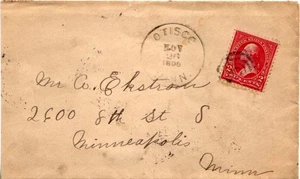 OTISCO
NOV
MINN
Mr C. Ekstrom
2600 8th St S
Minneapolis
Minn